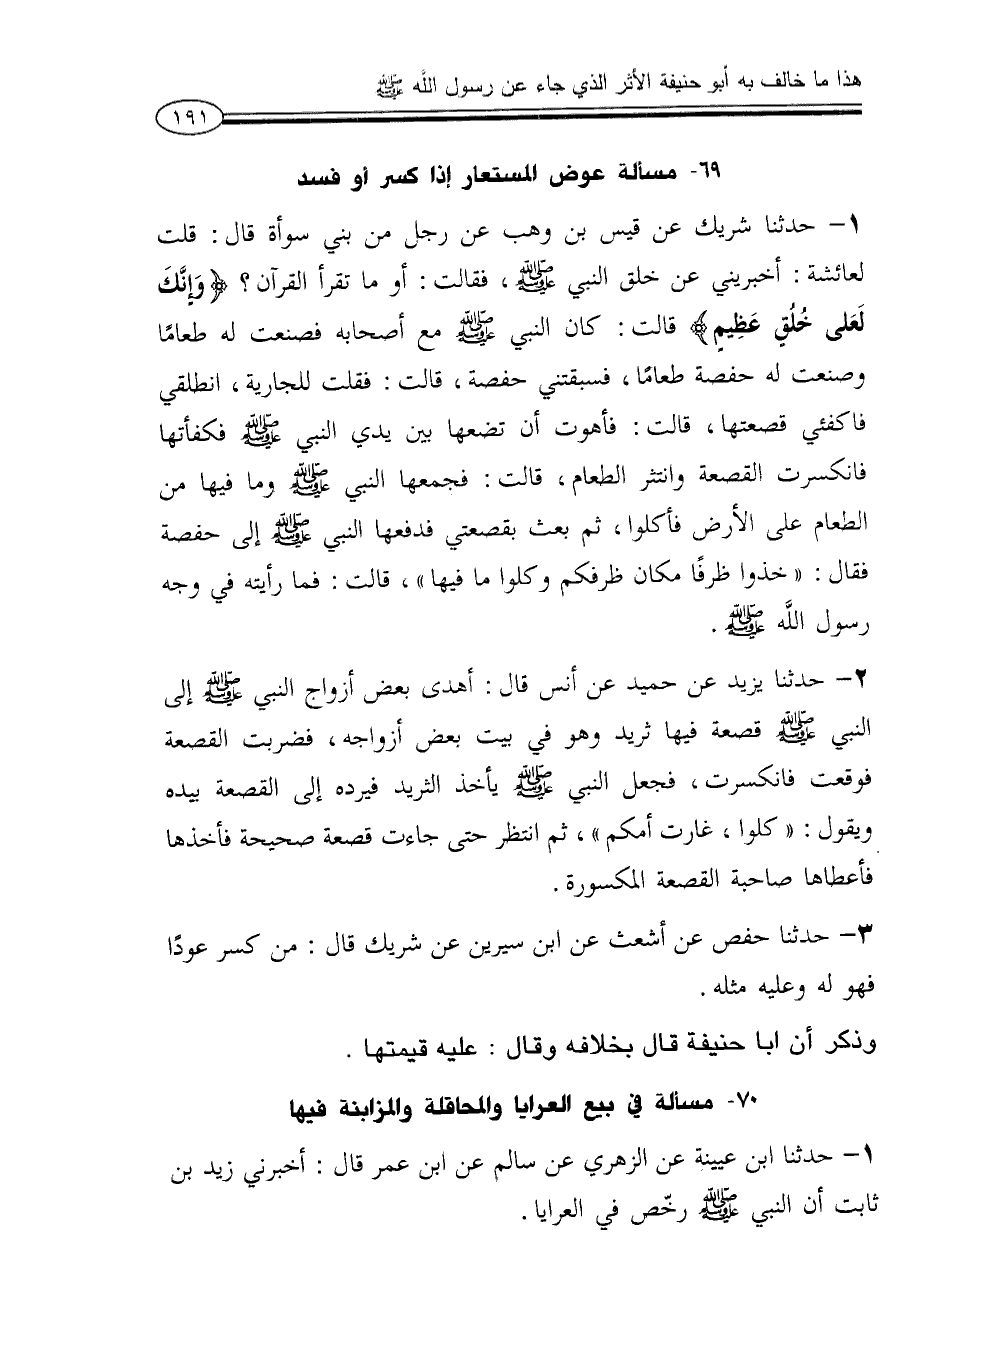 هذا ما خالف به أبو حنيفة الأثر الذي جاء عن رسول اللَّه ﷺ
١٩١
٦٩- مسألة عوض المستعار إذا كسر أو فسد
١- حدثنا شريك عن قيس بن وهب عن رجل من بني سوأة قال : قلت
لعائشة : أخبريني عن خلق النبي ﷺ ، فقالت : أو ما تقرأ القرآن ؟ ﴿وَإِنَّكَ
لَعَلى خُلُقٍ عَظِيمٍ﴾ قالت : كان النبي ﷺ مع أصحابه فصنعت له طعامًا
وصنعت له حفصة طعامًا ، فسبقتني حفصة ، قالت : فقلت للجارية ، انطلقي
فاكفئي قصعتها ، قالت : فأهوت أن تضعها بين يدي النبي ﷺ فكفأتها
فانكسرت القصعة وانتثر الطعام ، قالت : فجمعها النبي ﷺ وما فيها من
الطعام على الأرض فأكلوا ، ثم بعث بقصعتي فدفعها النبي ﷺ إلى حفصة
فقال : « خذوا ظرفًا مكان ظرفكم وكلوا ما فيها » ، قالت : فما رأيته في وجه
رسول اللَّه ﷺ .
٢- حدثنا يزيد عن حميد عن أنس قال : أهدى بعض أزواج النبي ﷺ إلى
النبي ﷺ قصعة فيها ثريد وهو في بيت بعض أزواجه ، فضربت القصعة
فوقعت فانكسرت ، فجعل النبي ﷺ يأخذ الثريد فيرده إلى القصعة بيده
ويقول : « كلوا ، غارت أمكم » ، ثم انتظر حتى جاءت قصعة صحيحة فأخذها
فأعطاها صاحبة القصعة المكسورة .
٣- حدثنا حفص عن أشعث عن ابن سيرين عن شريك قال : من كسر عودًا
فهو له وعليه مثله .
وذكر أن ابا حنيفة قال بخلافه وقال : عليه قيمتها .
٧٠- مسألة في بيع العرايا والمحاقلة والمزابنة فيها
١- حدثنا ابن عيينة عن الزهري عن سالم عن ابن عمر قال : أخبرني زيد بن
ثابت أن النبي ﷺ رخّص في العرايا .